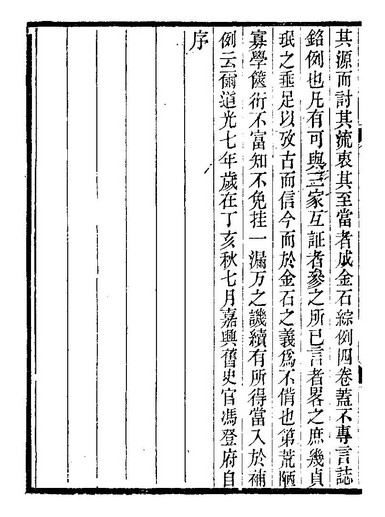 其源而討其流衷其至當者成金石綜例四卷蓋不專言誌
銘例也凡有可與三家互証者參之所已言者畧之庶幾貞
珉之垂足以攷古而信今而於金石之義為不偝也第荒陋
寡學篋衍不富知不免挂一漏万之譏續有所得當入於補
例云爾道光七年歲在丁亥秋七月嘉興舊史官馮登府自
序